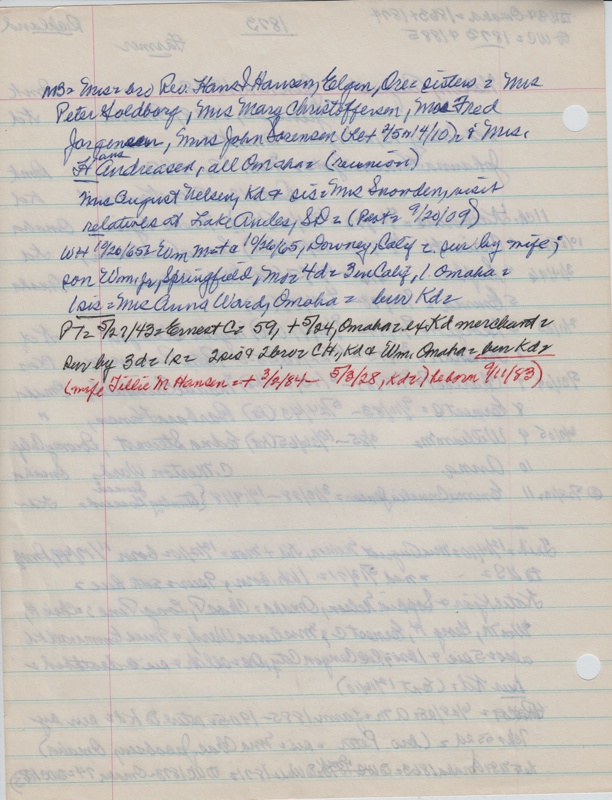 MB= Mrs= bro Rev. Hans I Hansen, Elgin, Ore= sisters = Mrs
Peter Goldborg, Mrs Mary Christoffersen, Mrs Fred
Jorgensen, Mrs John Sorensen (Let 2/5m14/10)= & Mrs.
Hans Andreasen, all Omaha= (reunion)
Mrs August Nelsen, Kd & sis= Mrs Snowden, visit
relatives at Lake Andes, SD= (Post= 9/20/09)
WH 10/20/65= Wm Mott a 10/26/65, Downey, Calif = sur by wife;
son Wm, Jr, Springfield, Mo= 4d= 3 in Calif, 1 Omaha=
1 sis= Mrs Anna Ward, Omaha= bur Kd=
PT= 5/27/43= Ernest C= 59, + 5/24, Omaha= ex Kd merchant=
sur by 3d= 1s= 2 sis & 2 bro= CH, Kd & Wm, Omaha= bur Kd=
(wife Tillie M Hansen= + 3/2/84- 5/3/28, Kd=) he born 9/11/83)